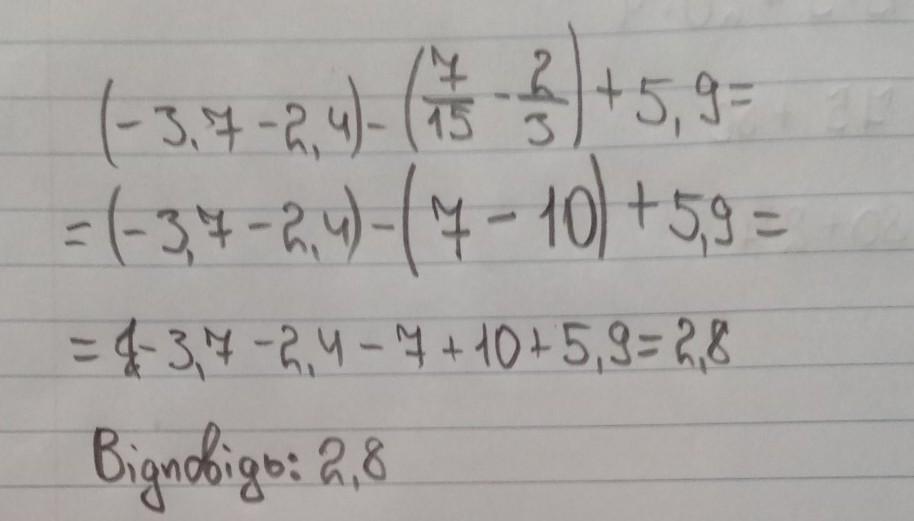 (-3,7-2,4)-(7/15-2/3)+5,9=
=(-3,7-2,4)-(7-10)+5,9=
=-3,7-2,4-7+10+5,9=2,8
Відповідь: 2,8